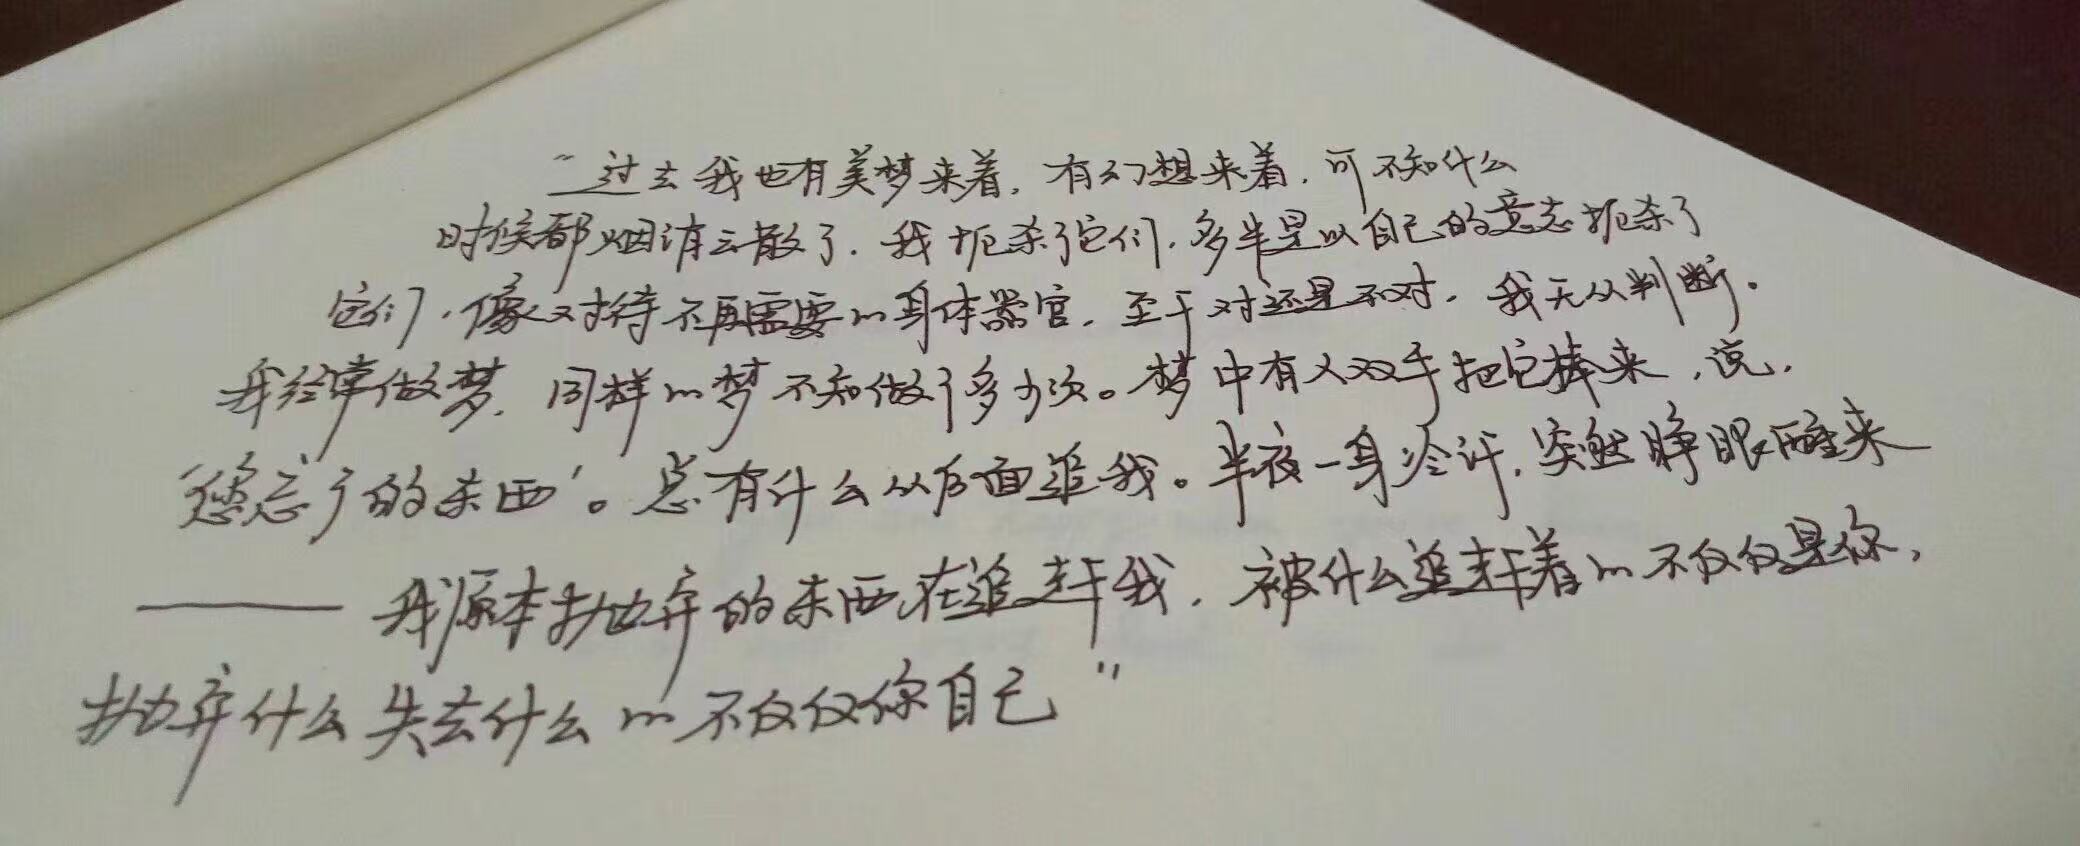 “过去我也有美梦来着，有幻想来着，可不知什么
时候都烟消云散了．我扼杀了它们，多半是以自己的意志扼杀了
它们，像对待不再需要的身体器官，至于对还是不对，我无从判断。
我经常做梦，同样的梦不知做了多少次。梦中有人双手把它捧来，说，
‘您忘了的东西’。总有什么从后面追我。半夜一身冷汗，突然睁眼醒来
——我原本抛弃的东西在追赶我，被什么追赶着的不仅仅是你，
抛弃什么失去什么的不仅仅你自己”